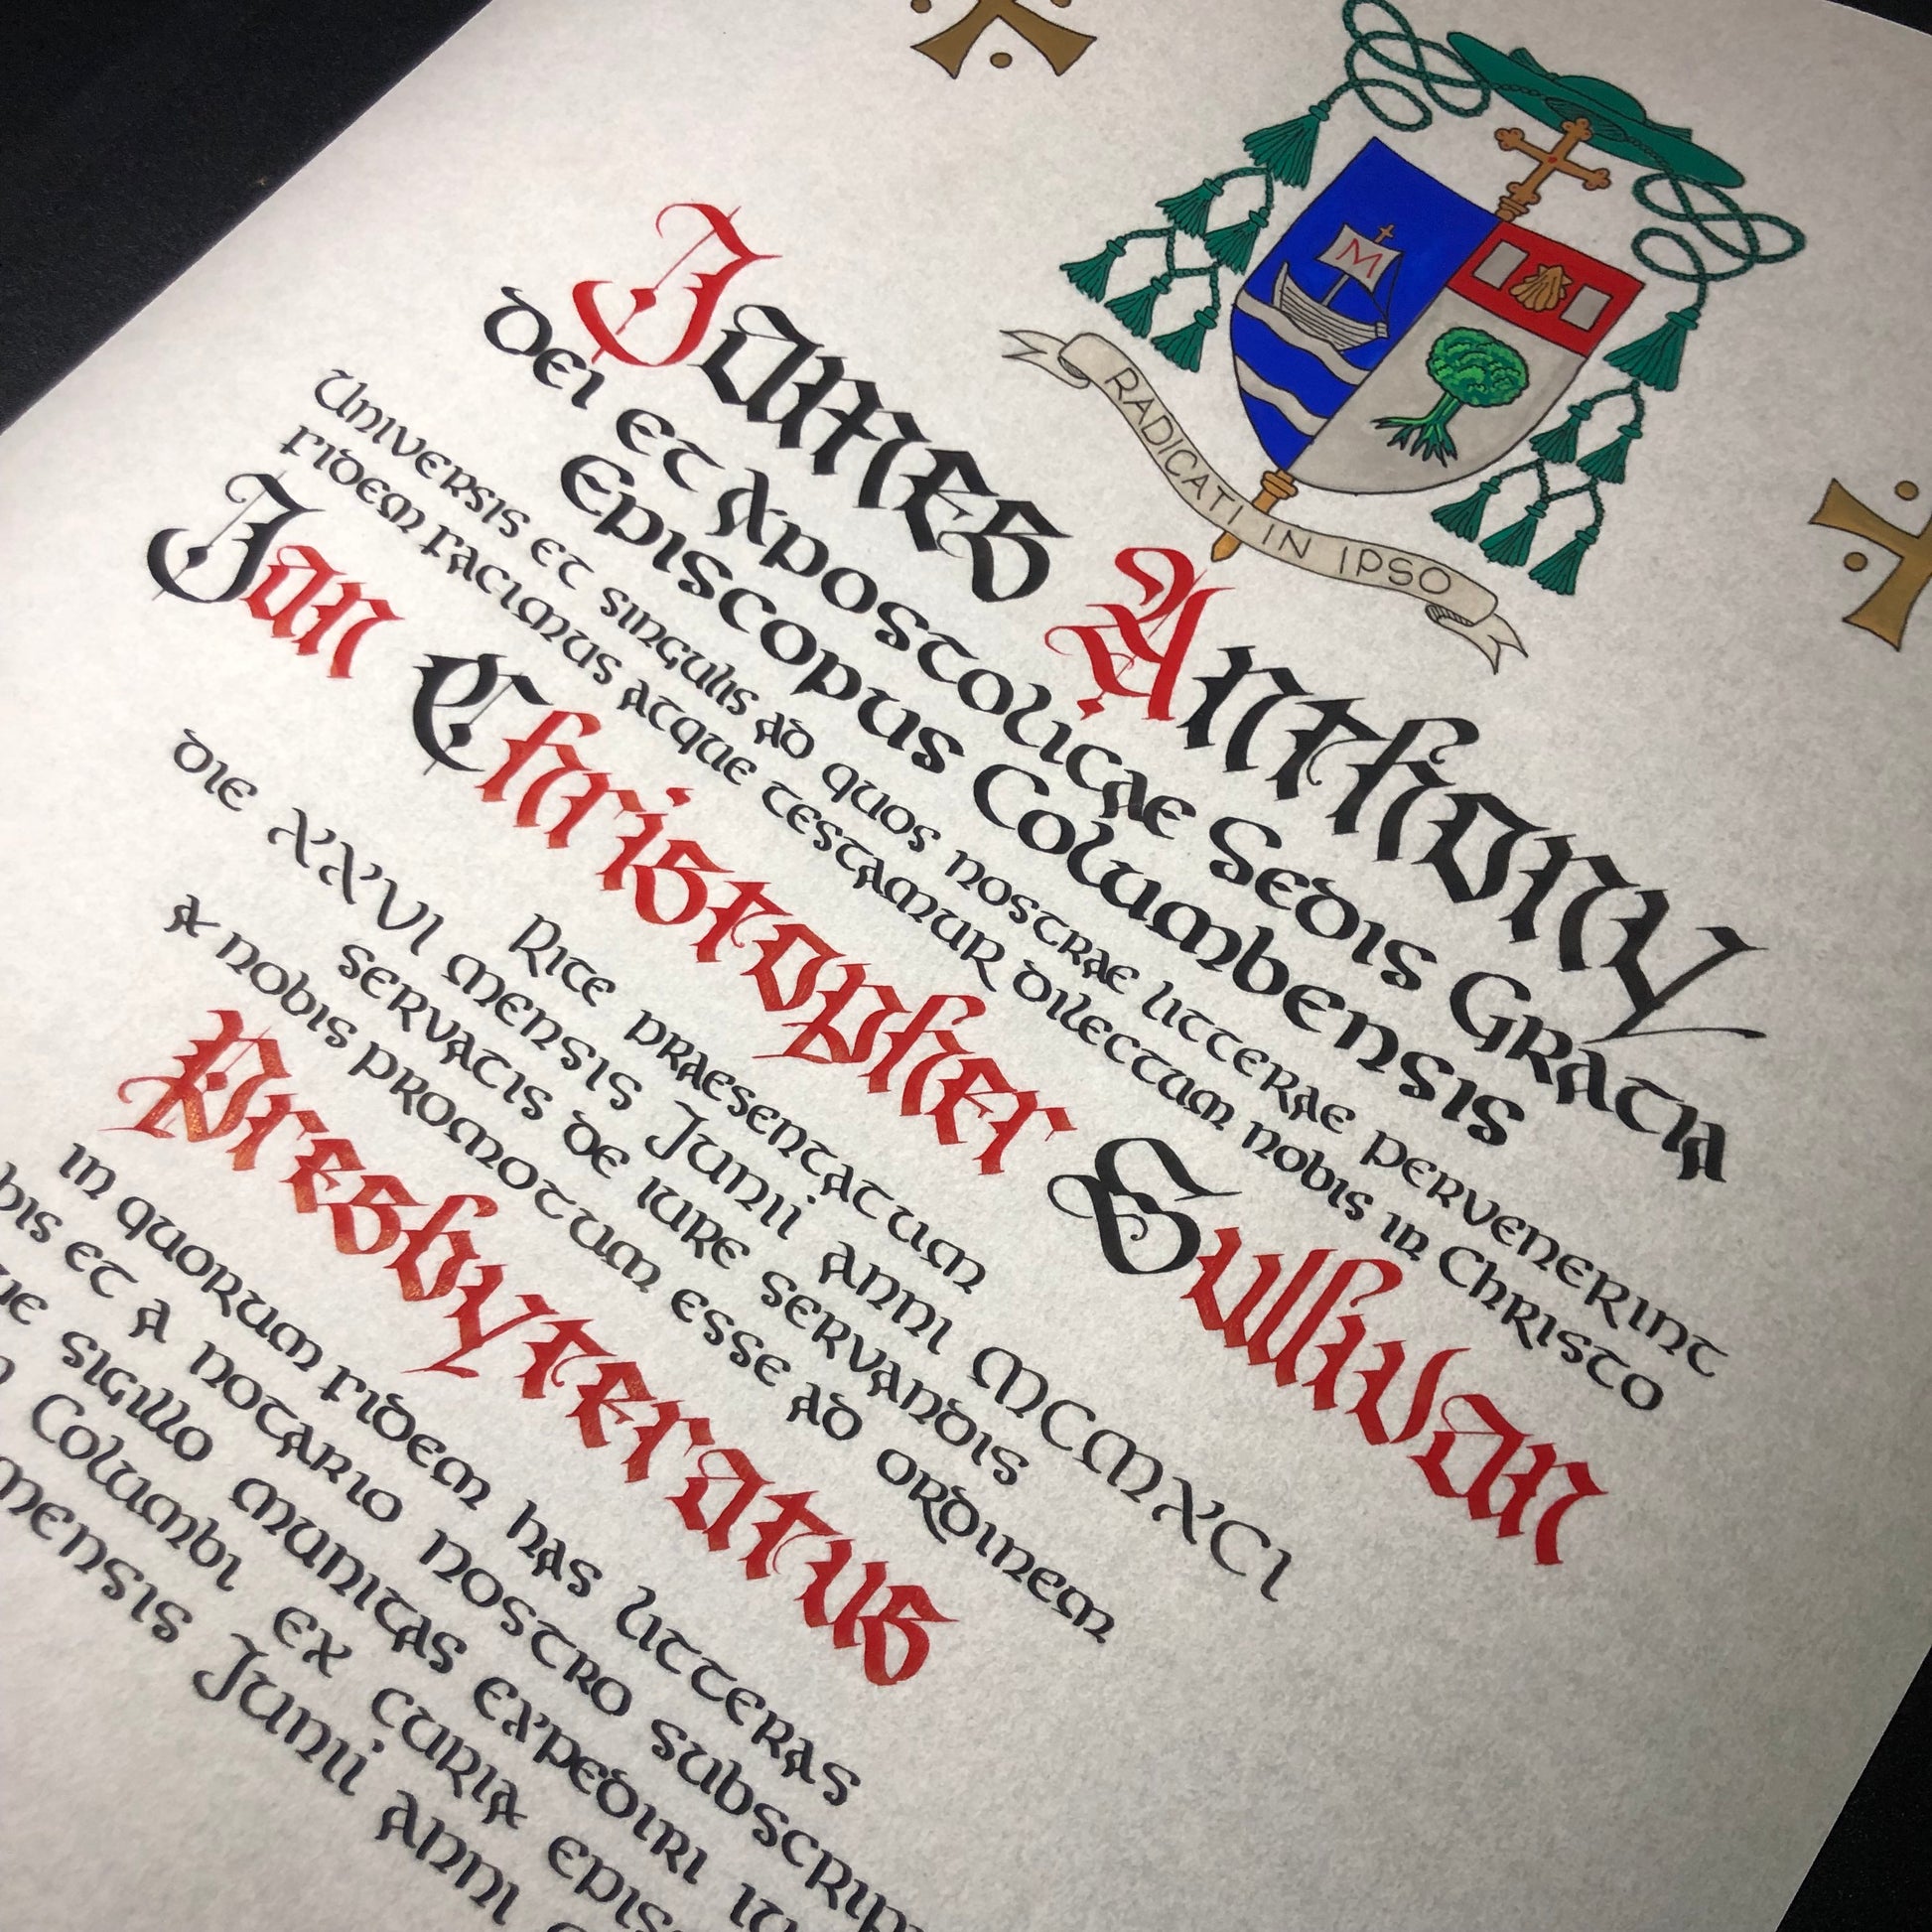 M
RADICATI IN IPSO
James Anthony
Dei et Apostolicae Sedis Gratia
Episcopus Columbensis
Universis et singulis ad quos nostrae litterae pervenerint
fidem facimus atque testamur dilectum nobis in Christo
Jan Christopher Sullivan
Rite praesentatum
die XXVI mensis Junii anni MCMXCI
servatis de iure servandis
a nobis promotum esse ad ordinem
Presbyteratus
in quorum fidem has litteras
bis et a notario nostro subscrip
ue sigillo munitas expediri iu
Columbi ex curia epis
mensis Junii anni